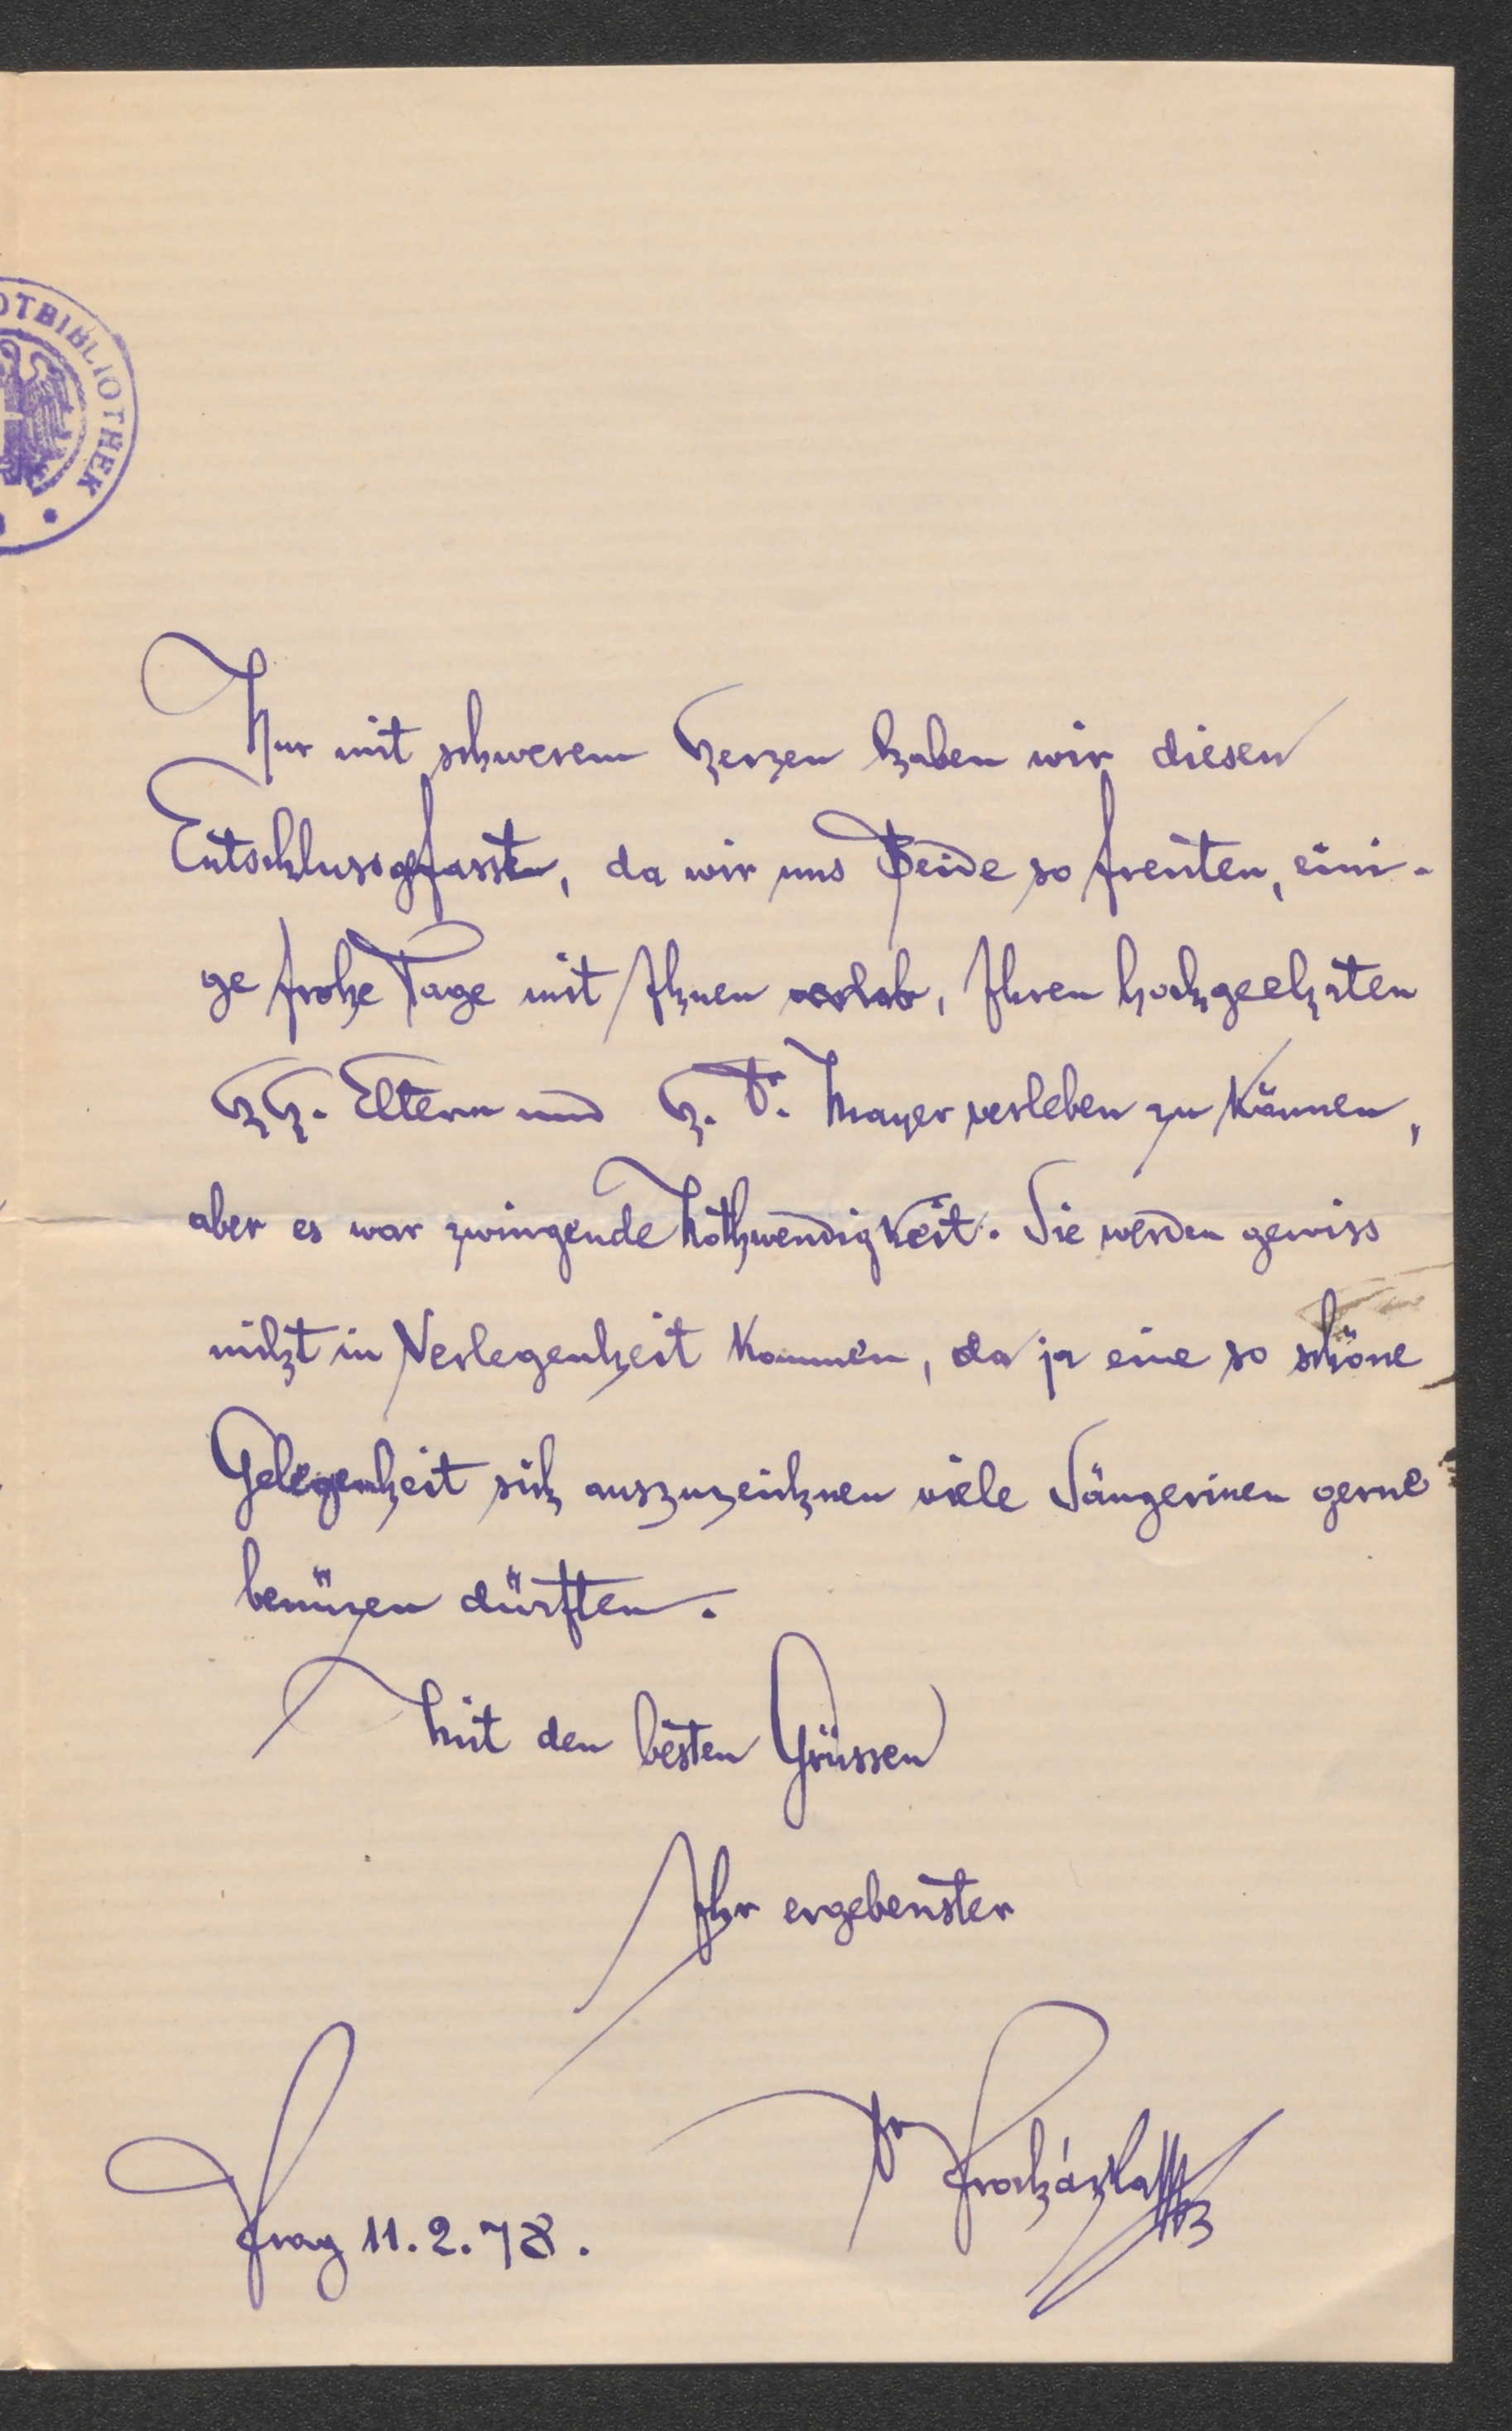 DTBIBLIOTHEK
Nur mit schwerem Herzen haben wir diesen
Entschluss gefasst, da wir uns Beide so freuten, eini-
ge frohe Tage mit Ihnen, Ihren hochgeehrten
HH. Eltern und H. Dr. Mayer verleben zu können,
aber es war zwingende Nothwendigkeit. Sie werden gewiss
nicht in Verlegenheit kommen, da ja eine so schöne
Gelegenheit sich auszuzeichnen viele Sängerinen gerne
benüzen dürften.
Mit den besten Grüssen
Ihr ergebenster
Dr Procházka
Prag 11.2.78.